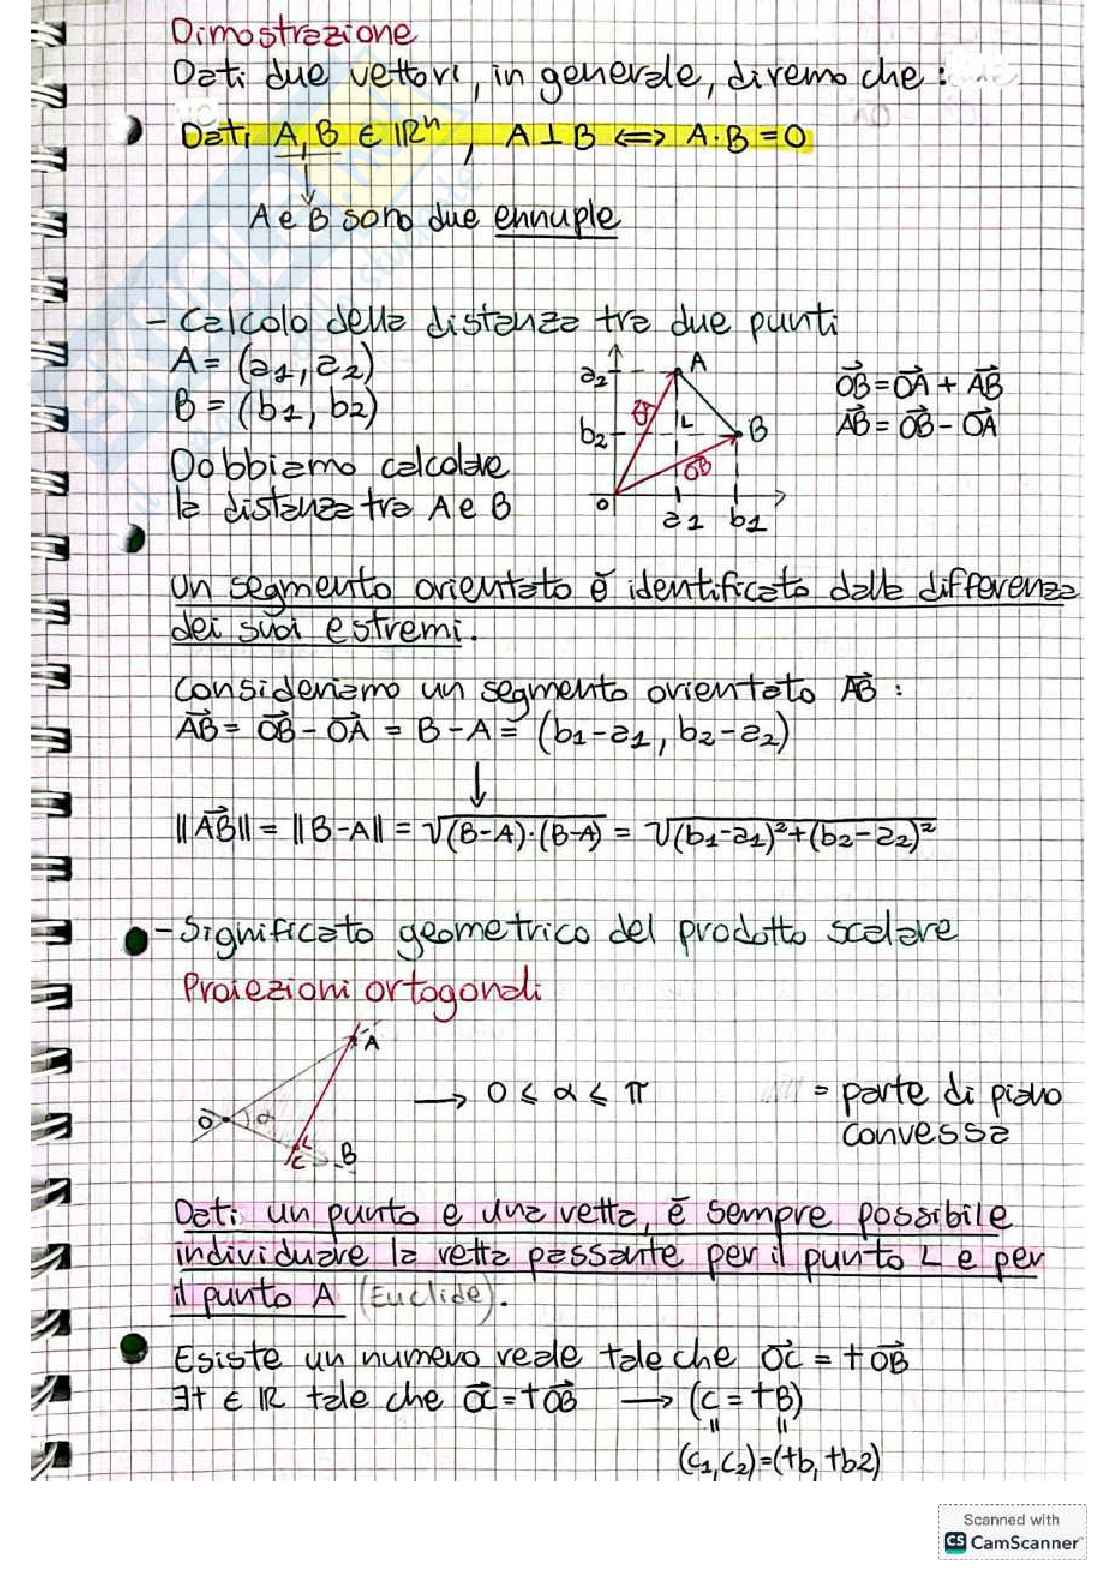 Dimostrazione
Dati due vettori, in generale, diremo che:
Dati A, B ∈ ℝⁿ, A ⊥ B ⟺ A·B = 0
A e B sono due ennuple
- Calcolo della distanza tra due punti
A = (a1, a2)
B = (b1, b2)
Dobbiamo calcolare
la distanza tra A e B
a2
A
b2
B
OB
O
a1
b1
OB⃗ = OA⃗ + AB⃗
AB⃗ = OB⃗ - OA⃗
Un segmento orientato è identificato dalla differenza
dei suoi estremi.
Consideriamo un segmento orientato AB⃗:
AB⃗ = OB⃗ - OA⃗ = B - A = (b1-a1, b2-a2)
↓
||AB⃗|| = ||B-A|| = √(B-A)·(B-A) = √(b1-a1)²+(b2-a2)²
- Significato geometrico del prodotto scalare
Proiezioni ortogonali
A
O
α
C
B
→ 0 ≤ α ≤ π
= parte di piano
convessa
Dati un punto e una retta, è sempre possibile
individuare la retta passante per il punto L e per
il punto A (Euclide).
Esiste un numero reale tale che OC⃗ = tOB⃗
∃t ∈ ℝ tale che OC⃗ = tOB⃗ → (C = tB)
(c1, c2) = (tb, tb2)
Scanned with
CS CamScanner